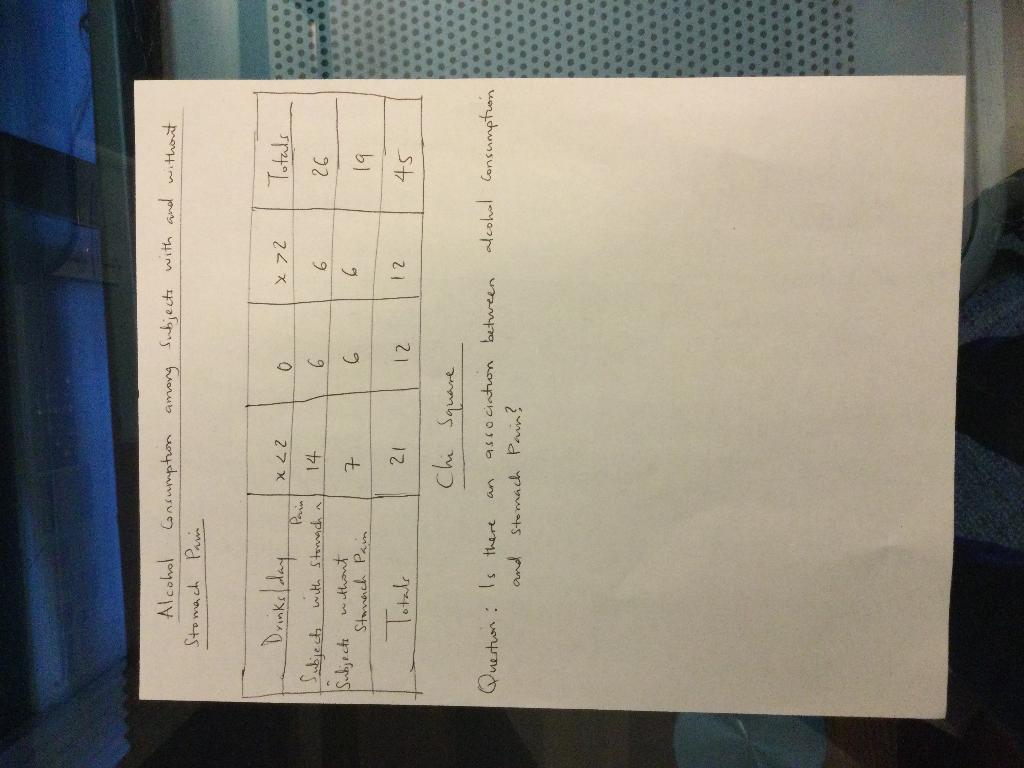 Alcohol Consumption among Subjects with and without
Stomach Pain
Drinks/day x<2 0 x>2 Totals
Subjects with Stomach Pain 14 6 6 26
Subjects without
Stomach Pain 7 6 6 19
Totals 21 12 12 45
Chi Square
Question: Is there an association between alcohol consumption
and stomach Pain?